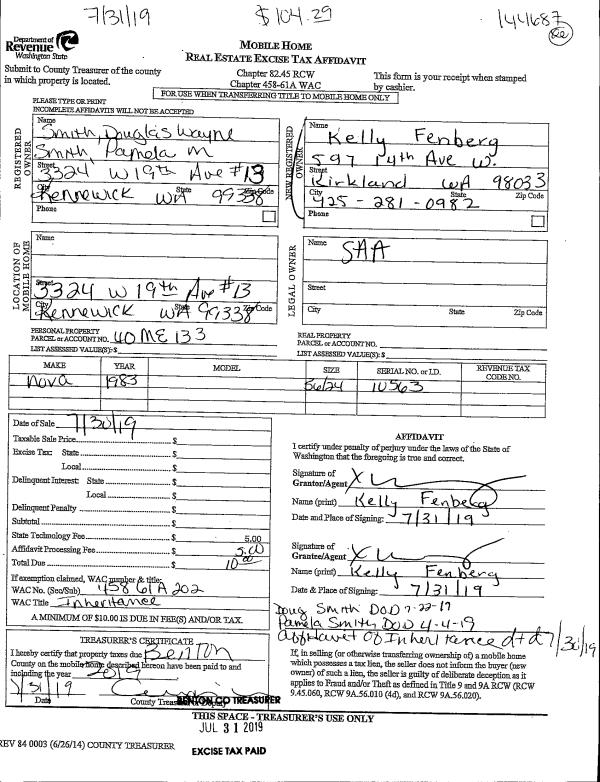 7/31/19 $104.29 1441687
Department of
Revenue
Washington State
MOBILE HOME
REAL ESTATE EXCISE TAX AFFIDAVIT
Submit to County Treasurer of the county
in which property is located.
Chapter 82.45 RCW
Chapter 458-61A WAC
This form is your receipt when stamped
by cashier.
FOR USE WHEN TRANSFERRING TITLE TO MOBILE HOME ONLY
PLEASE TYPE OR PRINT
INCOMPLETE AFFIDAVITS WILL NOT BE ACCEPTED
REGISTERED OWNER
Name
Smith, Douglas Wayne
Smith, Pamela M
Street
3324 W 19th Ave #13
City State Zip Code
Kennewick WA 99338
Phone
NEW REGISTERED OWNER
Name
Kelly Fenberg
597 14th Ave W.
Street
Kirkland WA 98033
City State Zip Code
425-281-0982
Phone
LOCATION OF MOBILE HOME
Name
Street
3324 W 19th Ave #13
City State Zip Code
Kennewick WA 99338
LEGAL OWNER
Name
SAA
Street
City State Zip Code
PERSONAL PROPERTY
PARCEL or ACCOUNT NO. 40ME133
LIST ASSESSED VALUE(S): $
REAL PROPERTY
PARCEL or ACCOUNT NO.
LIST ASSESSED VALUE(S): $
MAKE YEAR MODEL SIZE SERIAL NO. or I.D. REVENUE TAX CODE NO.
Nova 1983 56/24 10563
Date of Sale 7/30/19
Taxable Sale Price $
Excise Tax: State $
Local $
Delinquent Interest: State $
Local $
Delinquent Penalty $
Subtotal $
State Technology Fee $ 5.00
Affidavit Processing Fee $ 5.00
Total Due $ 10.00
If exemption claimed, WAC number & title:
WAC No. (Sec/Sub) 458 61A 202
WAC Title Inheritance
A MINIMUM OF $10.00 IS DUE IN FEE(S) AND/OR TAX.
AFFIDAVIT
I certify under penalty of perjury under the laws of the State of
Washington that the foregoing is true and correct.
Signature of
Grantor/Agent X
Name (print) Kelly Fenberg
Date and Place of Signing: 7/31/19
Signature of
Grantee/Agent X
Name (print) Kelly Fenberg
Date & Place of Signing: 7/31/19
Doug Smith DOD 7-22-17
Pamela Smith DOD 4-4-19
Affidavet of Inheritance dtd 7/30/19
TREASURER'S CERTIFICATE
I hereby certify that property taxes due Benton
County on the mobile home described hereon have been paid to and
including the year 2019
7/31/19
Date County Treasurer or Deputy
BENTON CO TREASURER
If, in selling (or otherwise transferring ownership of) a mobile home
which possesses a tax lien, the seller does not inform the buyer (new
owner) of such a lien, the seller is guilty of deliberate deception as it
applies to Fraud and/or Theft as defined in Title 9 and 9A RCW (RCW
9.45.060, RCW 9A.56.010 (4d), and RCW 9A.56.020).
THIS SPACE - TREASURER'S USE ONLY
JUL 31 2019
REV 84 0003 (6/26/14) COUNTY TREASURER
EXCISE TAX PAID